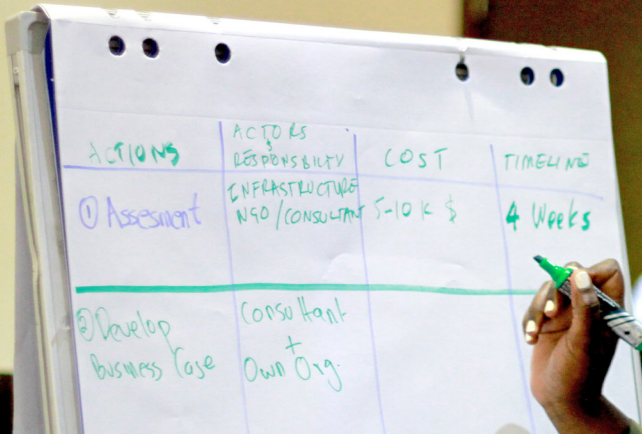 ACTIONS
ACTORS
&
RESPONSBILITY
COST
TIMELINE
① Assesment
INFRASTRUCTURE
NGO/CONSULTANT
5-10K $
4 Weeks
② Develop
Business Case
Consultant
+
Own Org.